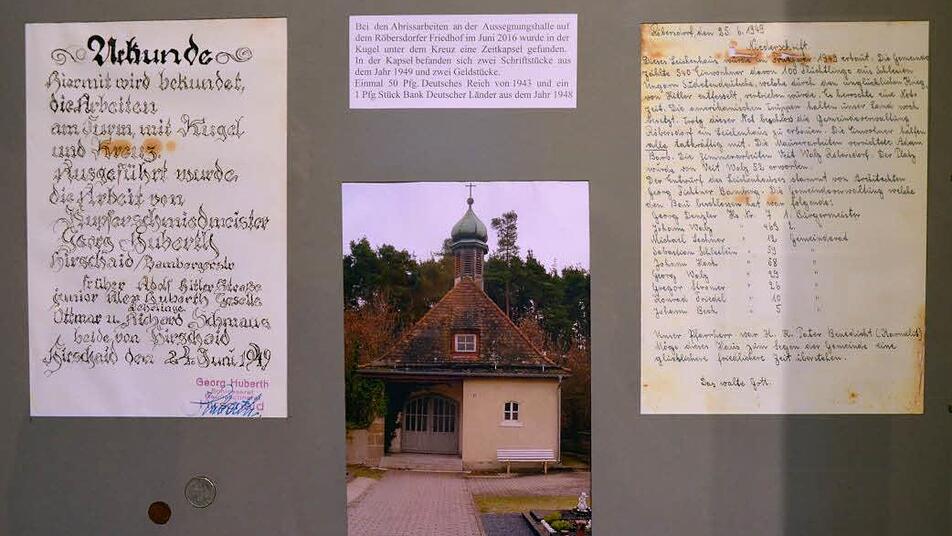 Urkunde
Hiermit wird bekundet,
die Arbeiten
am Turm mit Kugel
und Kreuz.
Ausgeführt wurde
die Arbeit von
Kupferschmiedmeister
Georg Huberth
Hirschaid/Bambergerstr
früher Adolf Hitler Straße
junior Huberth Geselle
Lehrlinge
Ottmar u. Richard Schmaus
beide von Hirschaid
Hirschaid den 24. Juni 1949
Georg Huberth
Bei den Abrissarbeiten an der Aussegnungshalle auf
dem Röbersdorfer Friedhof im Juni 2016 wurde in der
Kugel unter dem Kreuz eine Zeitkapsel gefunden.
In der Kapsel befanden sich zwei Schriftstücke aus
dem Jahr 1949 und zwei Geldstücke.
Einmal 50 Pfg. Deutsches Reich von 1943 und ein
1 Pfg Stück Bank Deutscher Länder aus dem Jahr 1948
Röbersdorf, den 25. 6. 1949
Niederschrift
Dieses Leichenhaus wurde 1949 erbaut. Die Gemeinde
zählte 540 Einwohner davon 100 Flüchtlinge aus Schlesien
Ungarn Sudetendeutsche, welche durch den unglücklichen Krieg,
von Hitler entfesselt, vertrieben wurden. Es herrschte eine Note
Zeit. Die amerikanischen Truppen halten unser Land noch
besetzt. Trotz dieser Not beschloß die Gemeindeverwaltung
Röbersdorf ein Leichenhaus zu erbauen. Die Einwohner halfen
alle tatkräftig mit. Die Maurerarbeiten verrichtete Adam
Die Zimmererarbeiten Veit Walz Röbersdorf. Der Platz
wurde von Veit Walz 52 erworben.
Der Entwurf des Leichenhauses stammt von Architekten
Georg Bamberg. Die Gemeindeverwaltung welche
den Bau beschlossen hat war folgende:
Georg Denzler Hs Nr. 7 1. Bürgermeister
Johann Walz " 46 2. "
Michael Lechner " 12 Gemeinderat
Sebastian " 59 "
Johann " 68 "
Georg Walz " 29 "
Gregor " 26 "
Konrad " 10 "
Johann Bech " 5 "
Unser Pfarrherr war H. H. Pater Benedikt (Karmelit)
Möge dieses Haus zum Segen der Gemeinde eine
glücklichere friedlichere Zeit überstehen.
Das walte Gott.